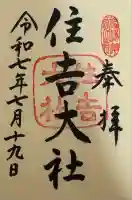 奉拝
住吉大社
令和七年七月十九日